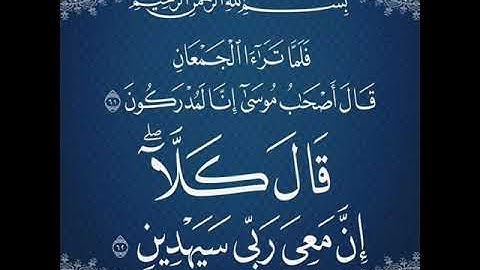 بِسْمِ ٱللَّهِ ٱلرَّحْمَٰنِ ٱلرَّحِيمِ
فَلَمَّا تَرَٰٓءَا ٱلْجَمْعَانِ
قَالَ أَصْحَٰبُ مُوسَىٰٓ إِنَّا لَمُدْرَكُونَ ٦١
قَالَ كَلَّآ ۖ
إِنَّ مَعِىَ رَبِّى سَيَهْدِينِ ٦٢